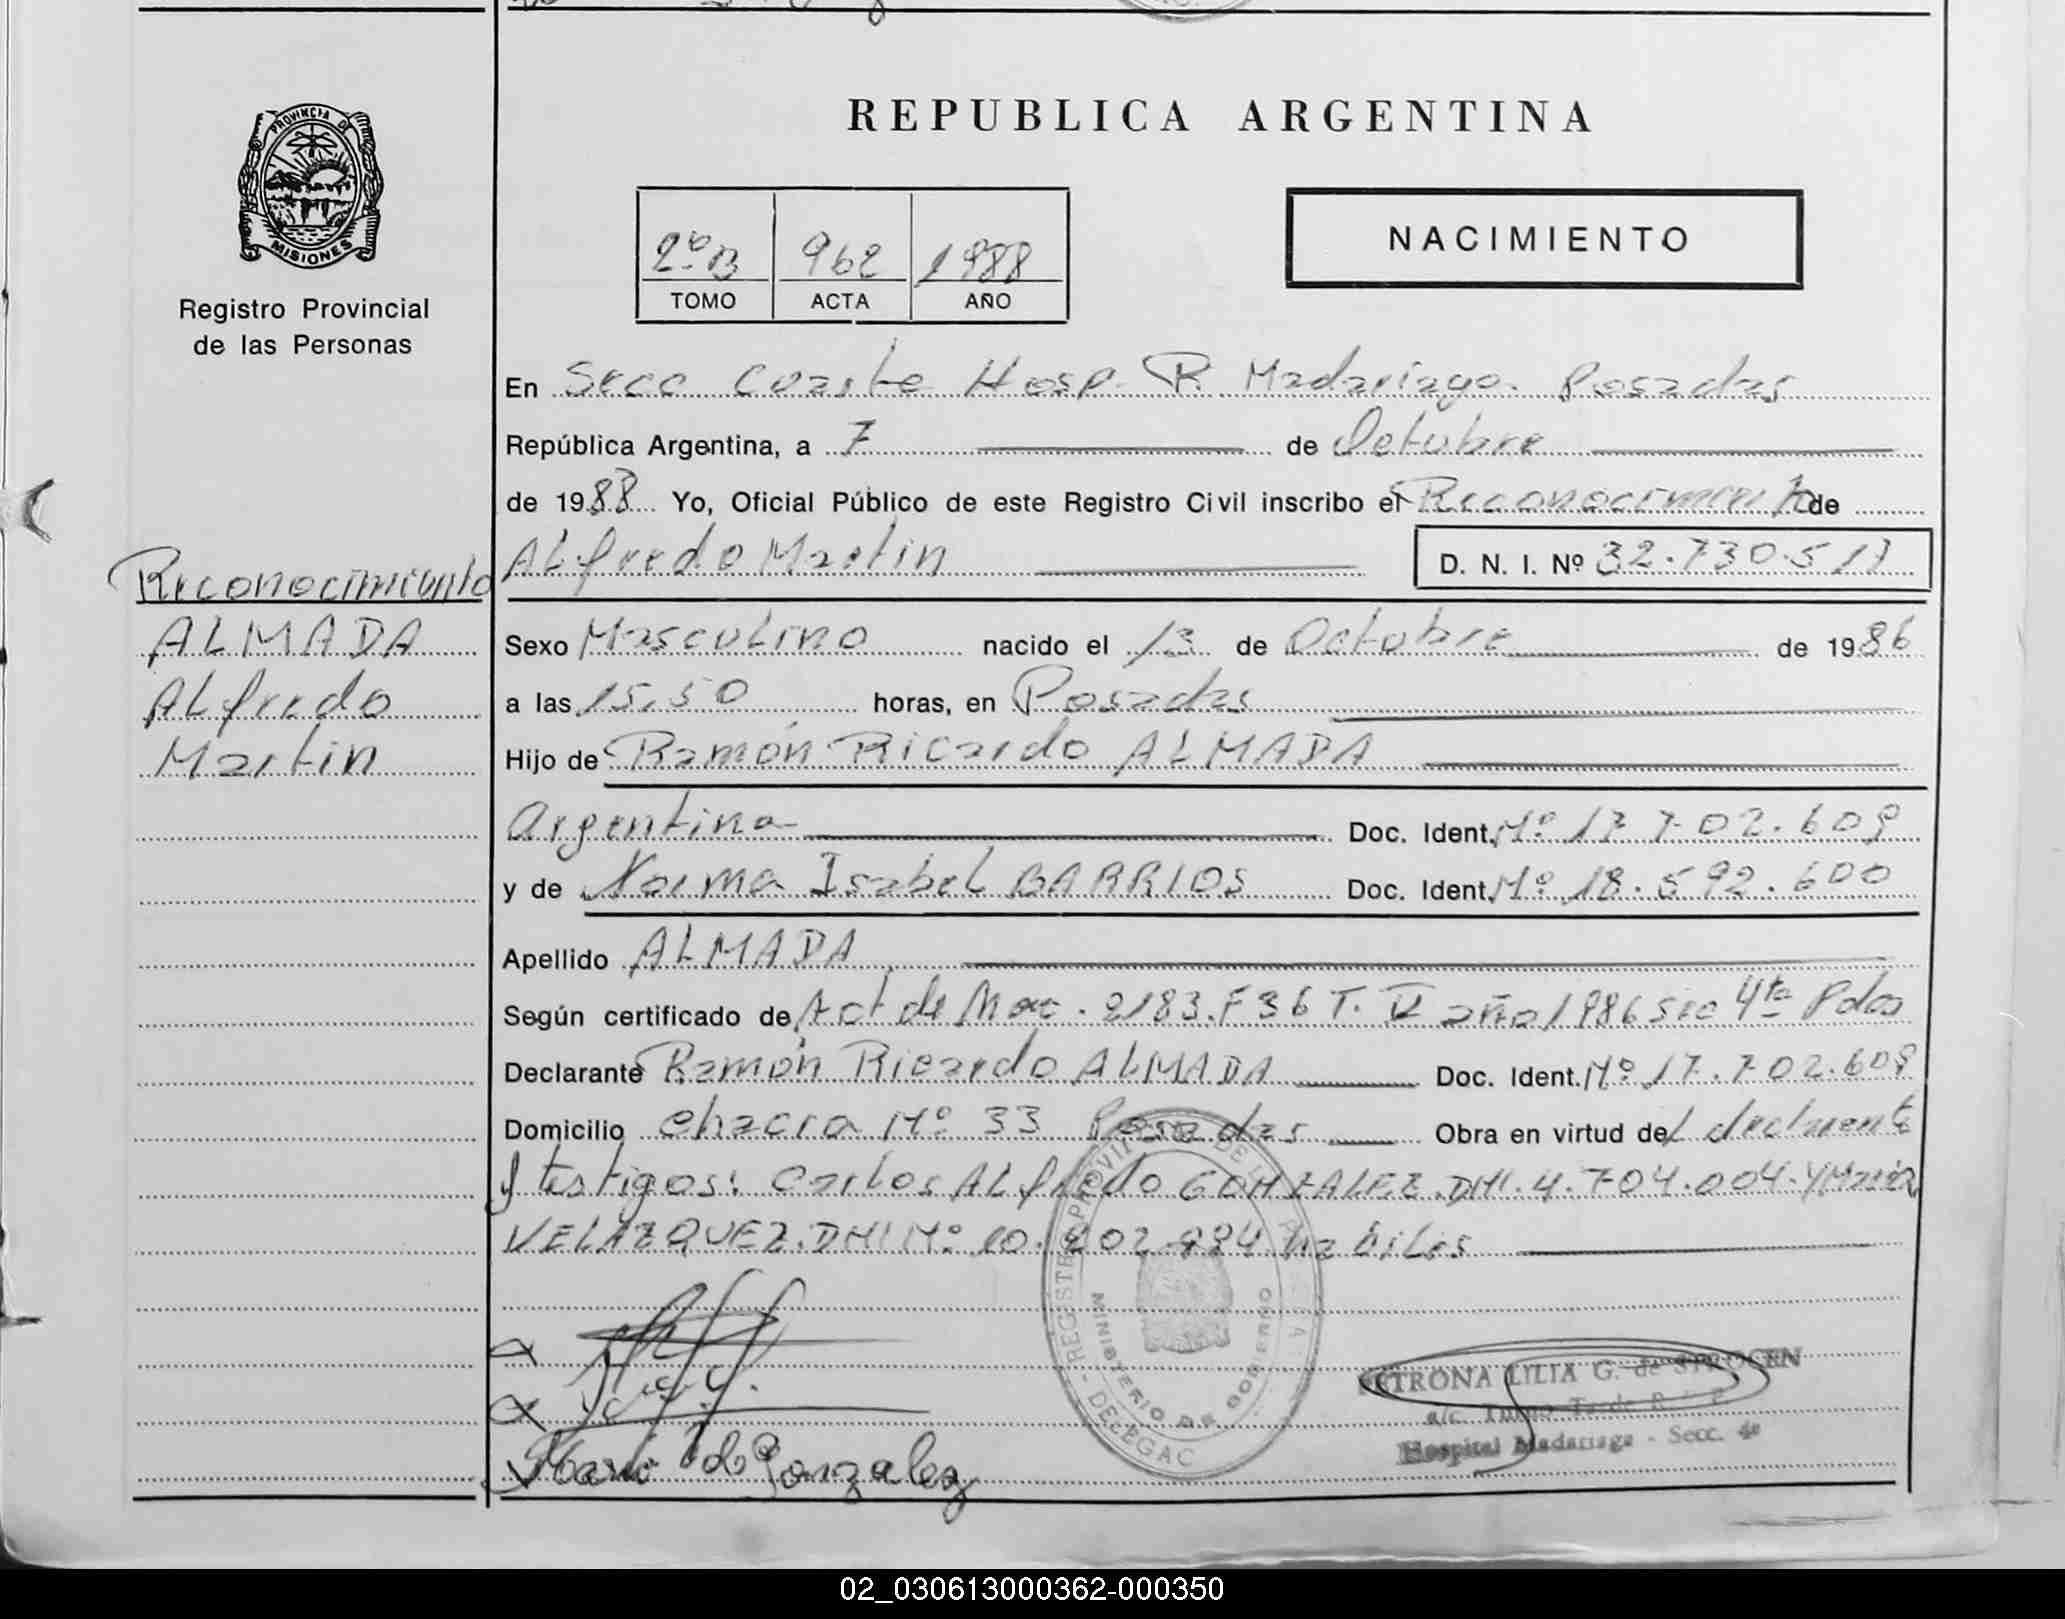 PROVINCIA DE
MISIONES
Registro Provincial
de las Personas
REPUBLICA ARGENTINA
2º B 962 1988
TOMO ACTA AÑO
NACIMIENTO
En Secc Cuarta Hosp. R. Madariaga. Posadas
República Argentina, a 7 de Octubre
de 1988 Yo, Oficial Público de este Registro Civil inscribo el Reconocimiento de
Alfredo Martin D. N. I. Nº 32.730.517
Reconocimiento
ALMADA
Alfredo
Martin
Sexo Masculino nacido el 13 de Octubre de 1986
a las 15,50 horas, en Posadas
Hijo de Ramón Ricardo ALMADA
Argentina Doc. Ident. Nº 17.702.609
y de Norma Isabel BARRIOS Doc. Ident. Nº 18.592.600
Apellido ALMADA
Según certificado de Act de Nac. 2183.F36 T. V año 1986 sec 4ta Pdas
Declarante Ramón Ricardo ALMADA Doc. Ident. Nº 17.702.609
Domicilio Chacra Nº 33 Posadas Obra en virtud del declarante
y testigos: Carlos Alfredo GONZALEZ. DNI. 4.704.004. y Maria
VELAZQUEZ. DNI Nº 10. habiles
REGISTRO PROVINCIAL DE LAS PERSONAS - DELEGAC
MINISTERIO DE GOBIERNO
PETRONA LILIA G. de
a/c. Turno Tarde
Hospital Madariaga - Secc. 4ª
Gonzalez
02_030613000362-000350